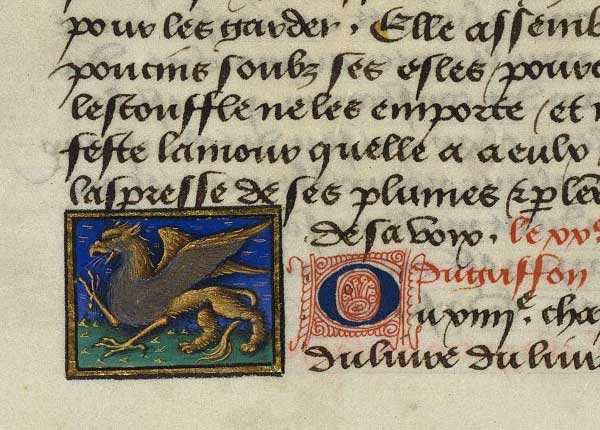 pour les garder. Elle assemb
poucins soubz ses esles / pour
lestouffle ne les emporte / et
feste lamour quelle a a eulx
laspresse de ses plumes & p le
de sa voix. le xxe.
du griffon
O
u xiiiie. cha
du livre du livr